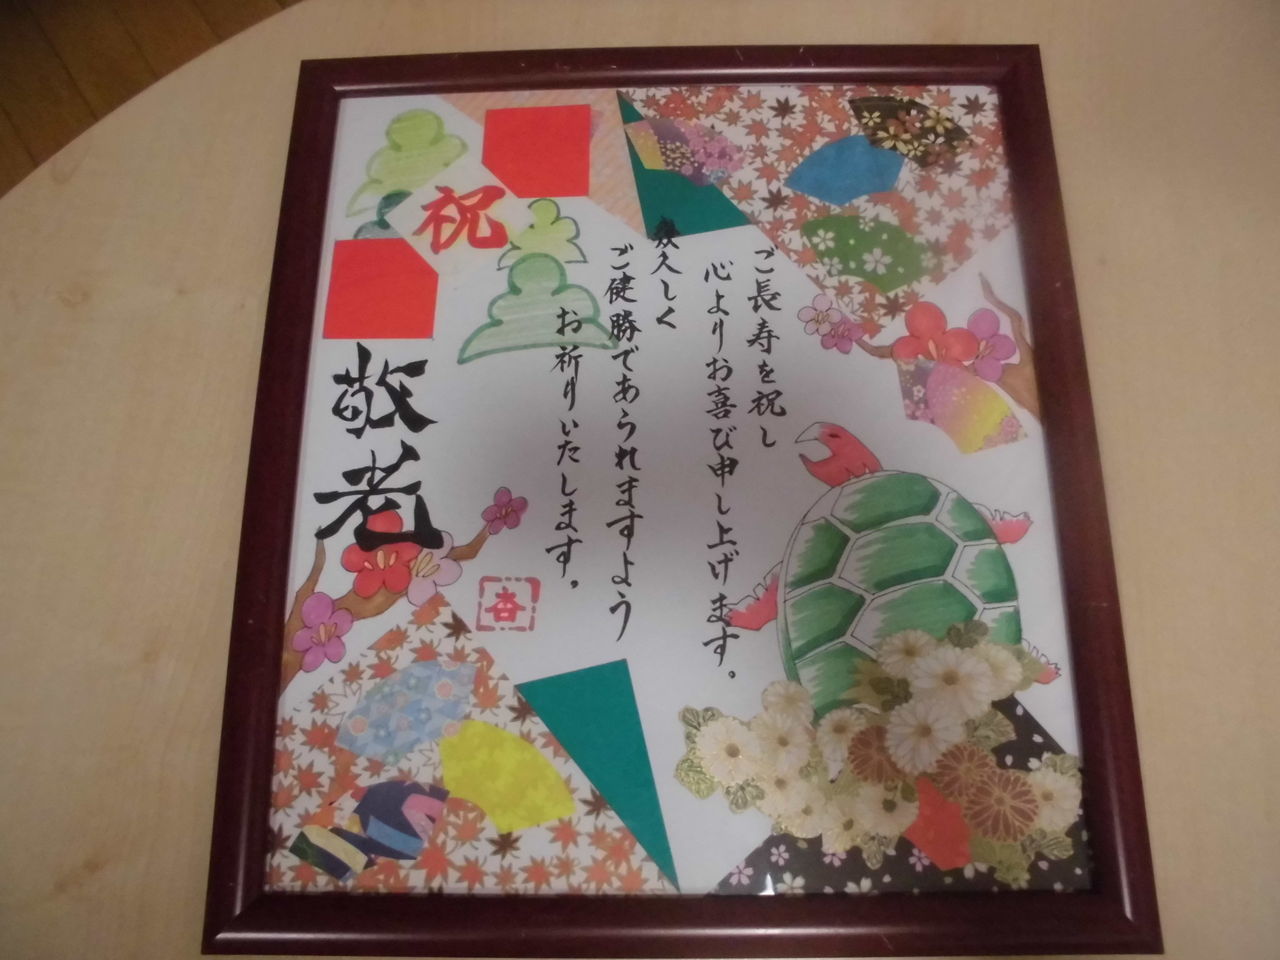 ご長寿を祝し
心よりお喜び申し上げます。
幾久しく
ご健勝であられますよう
お祈りいたします。
祝
敬老